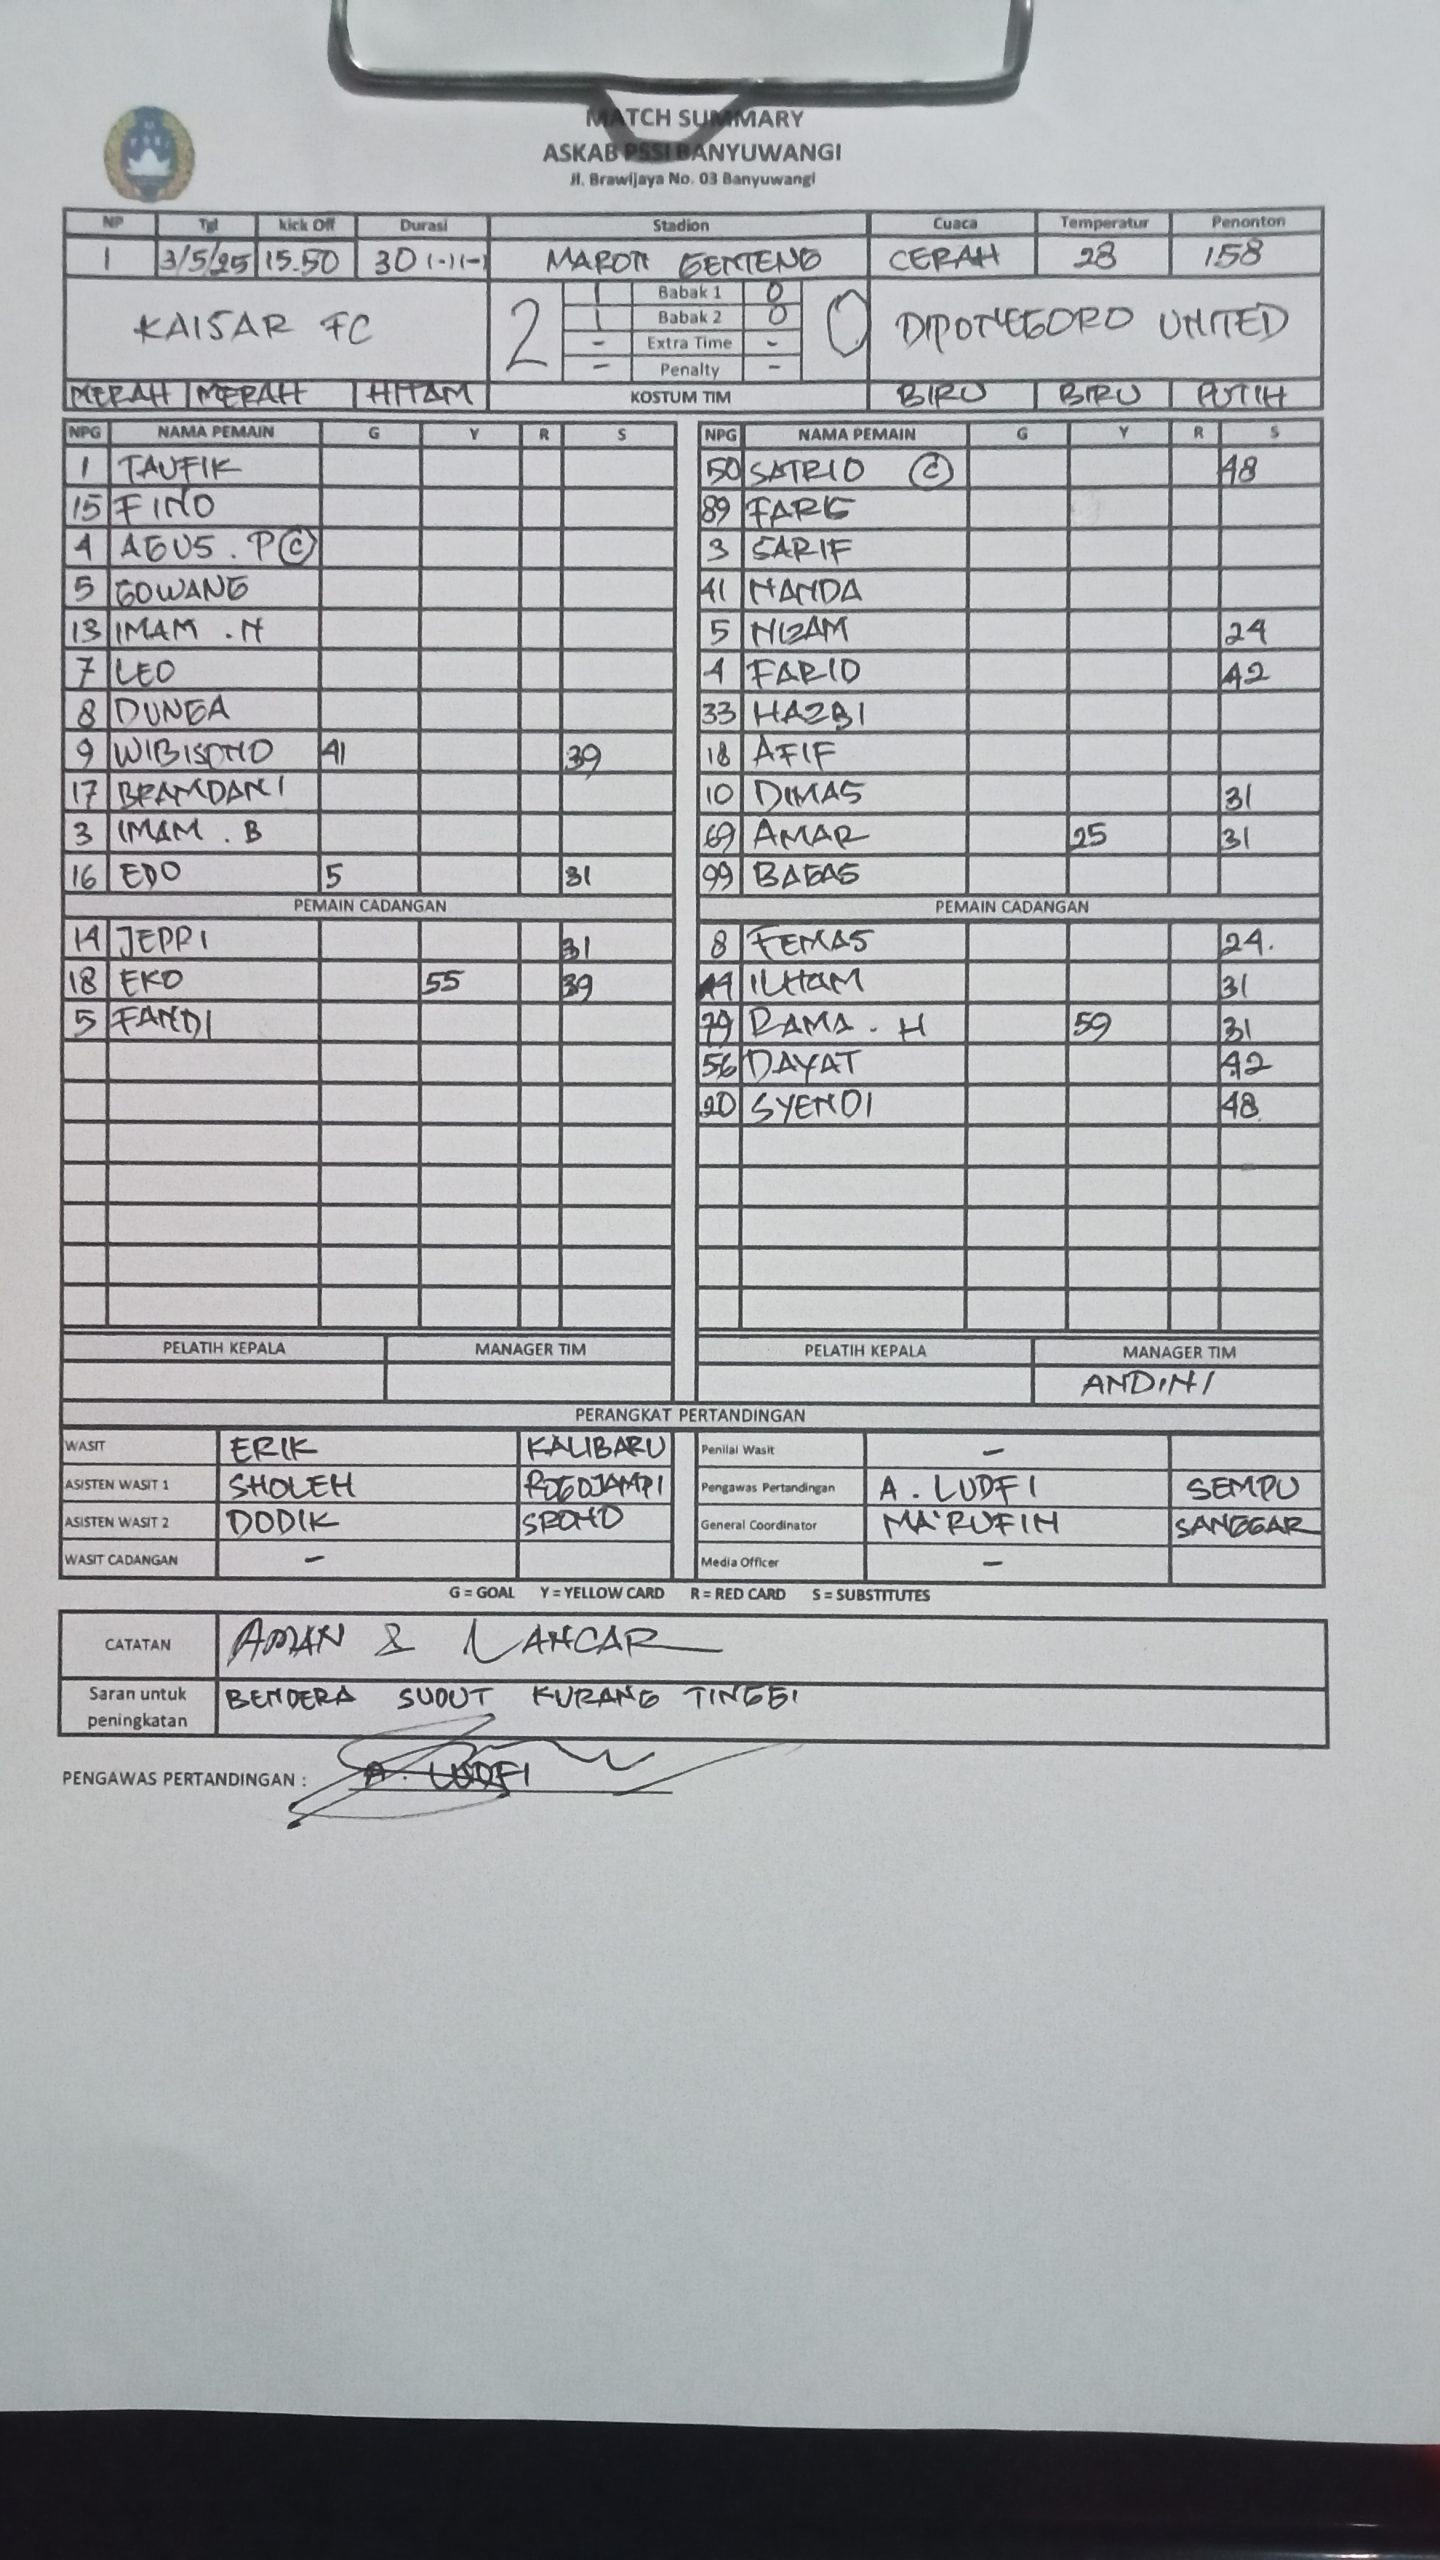 MATCH SUMMARY
ASKAB PSSI BANYUWANGI
Jl. Brawijaya No. 03 Banyuwangi
NP Tgl kick Off Durasi Stadion Cuaca Temperatur Penonton
1 3/5/25 15.50 30 (-)(-) MARON GENTENG CERAH 28 158
KAISAR FC 2 0 DIPONEGORO UNITED
1 Babak 1 0
1 Babak 2 0
- Extra Time -
- Penalty -
MERAH MERAH HITAM KOSTUM TIM BIRU BIRU PUTIH
NPG NAMA PEMAIN G Y R S
1 TAUFIK
15 FINO
4 AGUS . P (C)
5 GOWANG
13 IMAM . N
7 LEO
8 DUNGA
9 WIBISONO 41 39
17 BRAMDANI
3 IMAM . B
16 EDO 5 31
PEMAIN CADANGAN
14 JEPRI 31
18 EKO 55 39
5 FANDI
PELATIH KEPALA MANAGER TIM
NPG NAMA PEMAIN G Y R S
50 SATRIO (C) 48
89 FARIS
3 SARIF
41 NANDA
5 NIZAM 24
4 FARID 42
33 HAZBI
18 AFIF
10 DIMAS 31
69 AMAR 25 31
99 BAGAS
PEMAIN CADANGAN
8 FEMAS 24.
ILHAM 31
79 RAMA . H 59 31
56 DAYAT 42
20 SYENDI 48
PELATIH KEPALA MANAGER TIM
ANDINI
PERANGKAT PERTANDINGAN
WASIT ERIK KALIBARU Penilai Wasit -
ASISTEN WASIT 1 SHOLEH ROGOJAMPI Pengawas Pertandingan A . LUDFI SEMPU
ASISTEN WASIT 2 DODIK SRONO General Coordinator MA'RUFIN SANGGAR
WASIT CADANGAN - Media Officer -
G = GOAL Y = YELLOW CARD R = RED CARD S = SUBSTITUTES
CATATAN AMAN & LANCAR
Saran untuk peningkatan BENDERA SUDUT KURANG TINGGI
PENGAWAS PERTANDINGAN : A. LUDFI